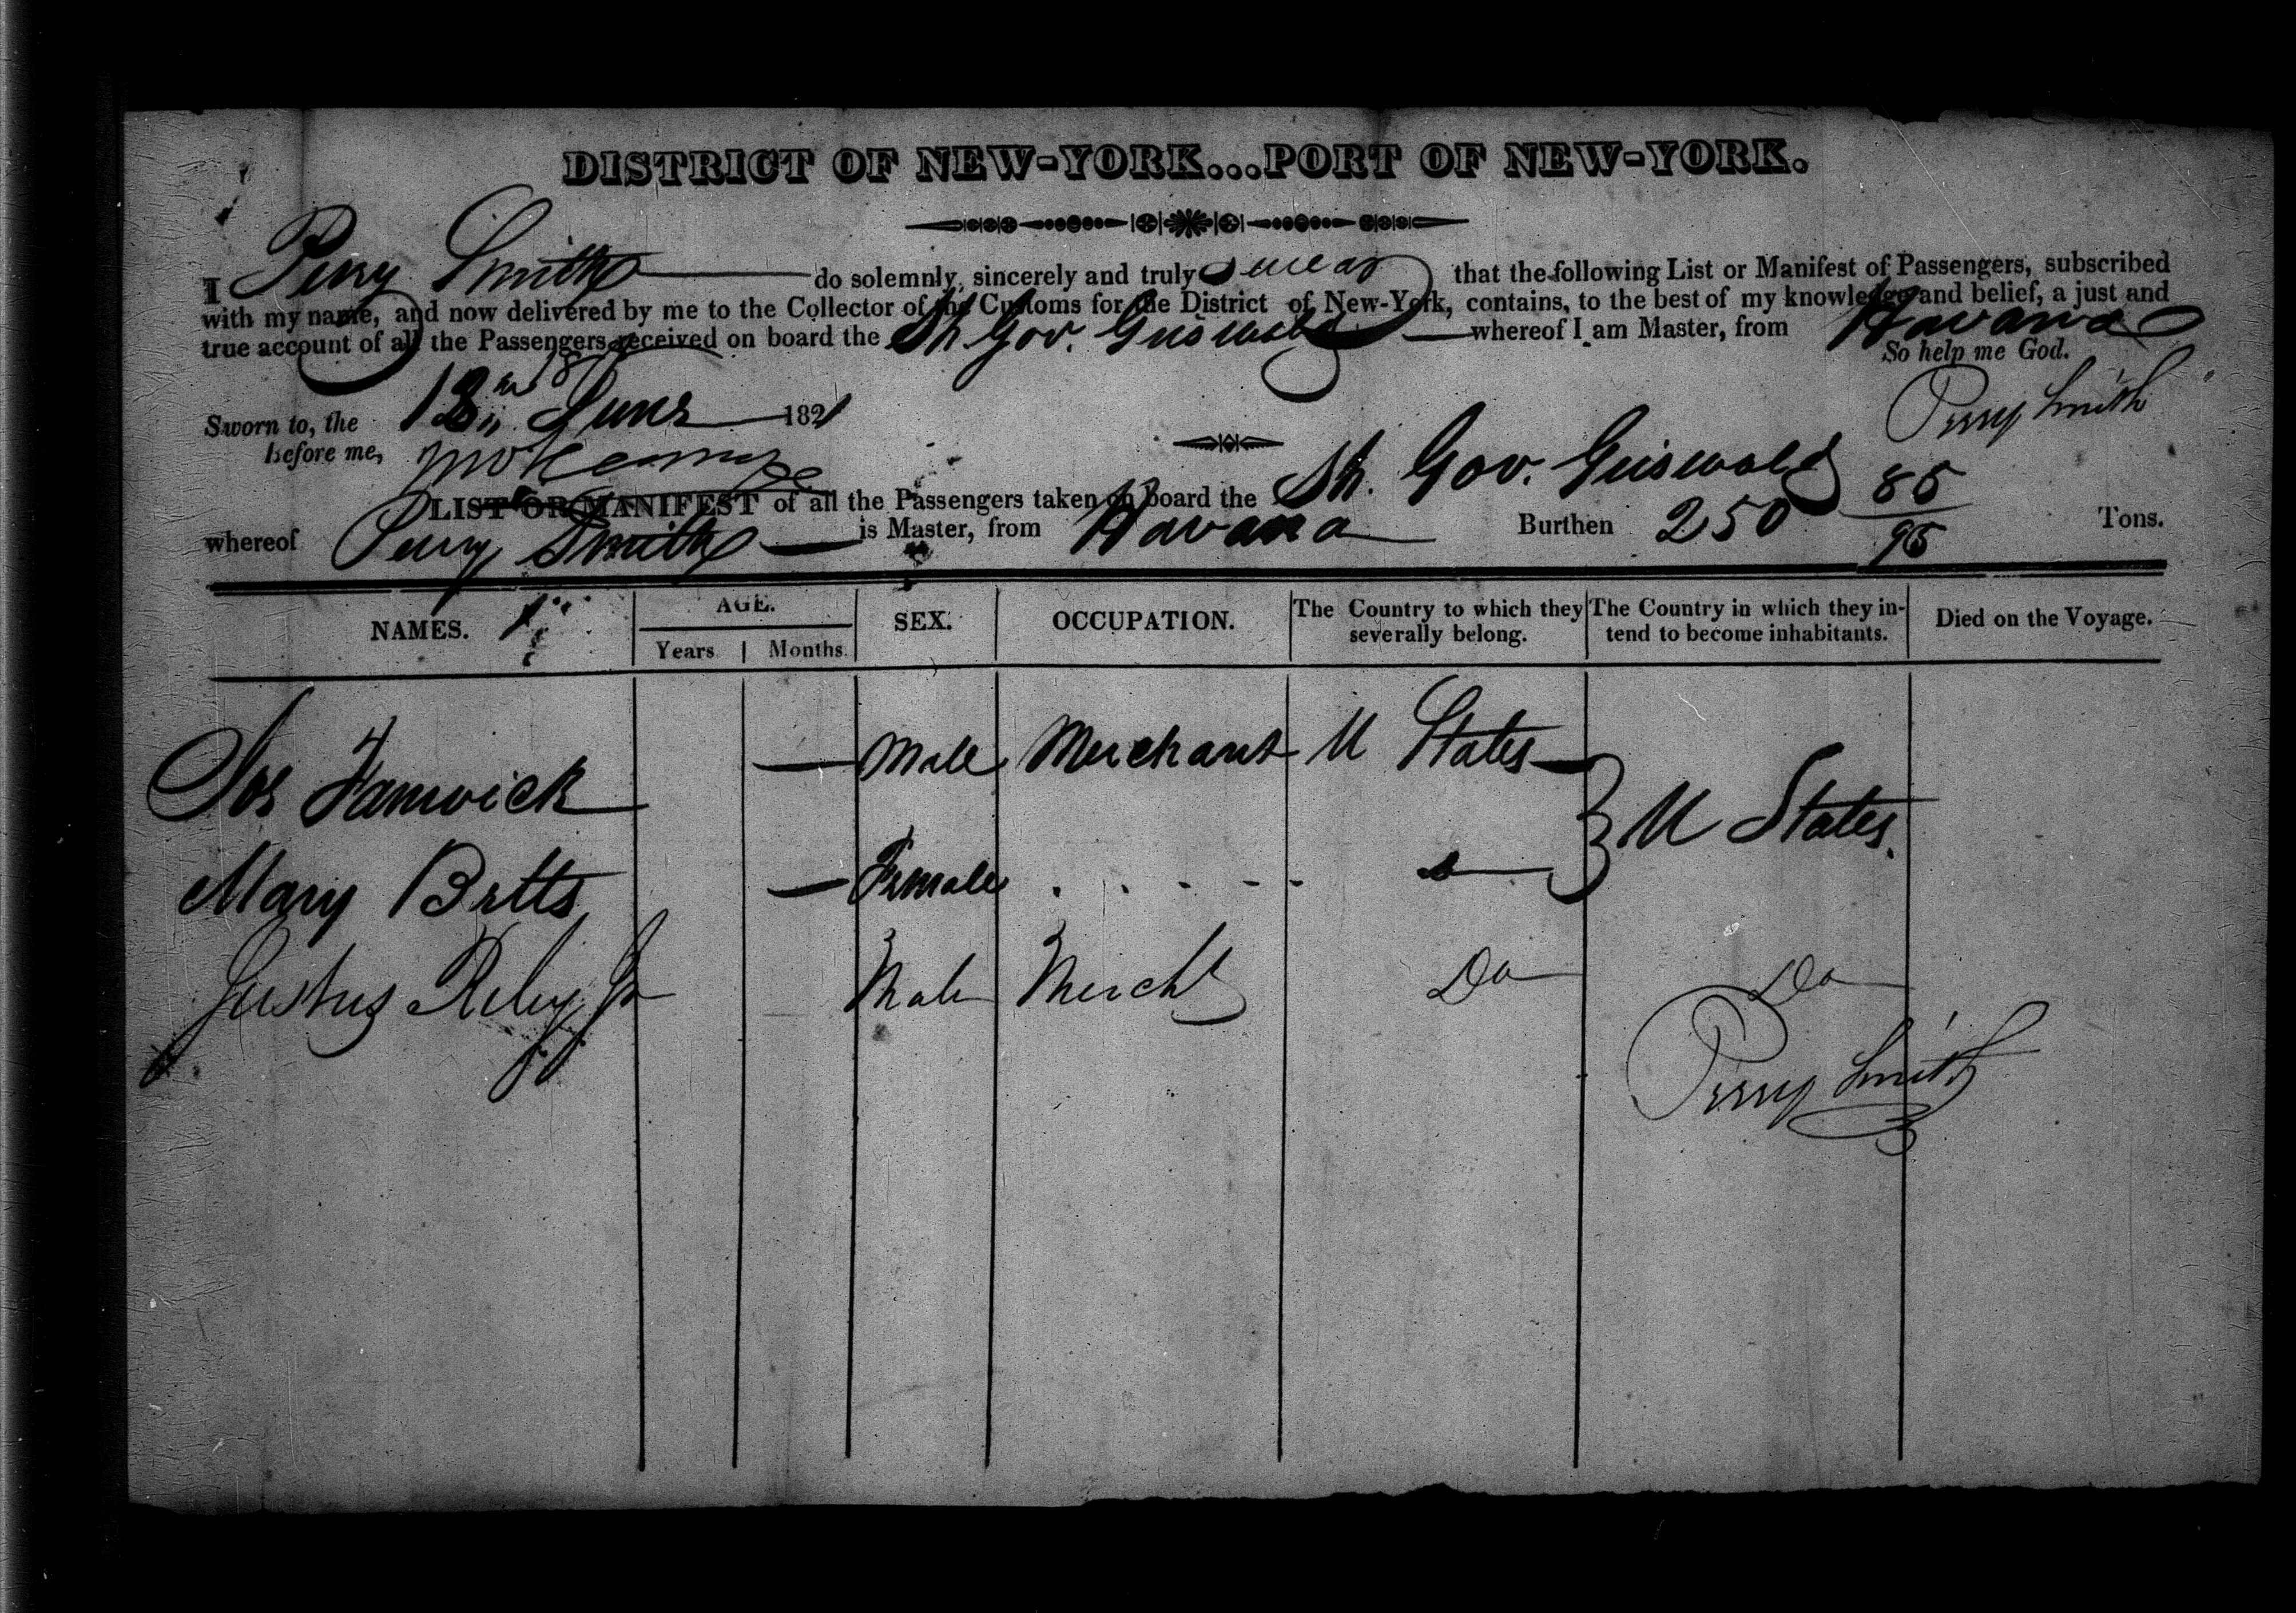 DISTRICT OF NEW-YORK...PORT OF NEW-YORK.
I Perry Smith do solemnly, sincerely and truly swear that the following List or Manifest of Passengers, subscribed
with my name, and now delivered by me to the Collector of the Customs for the District of New-York, contains, to the best of my knowledge and belief, a just and
true account of all the Passengers received on board the Sh Gov. Griswold whereof I am Master, from Havana
So help me God.
Sworn to, the June 1821 Perry Smith
before me,
LIST OR MANIFEST of all the Passengers taken on board the Sh. Gov. Griswold
whereof Perry Smith is Master, from Havana Burthen 250 85/95 Tons.
NAMES. AGE. SEX. OCCUPATION. The Country to which they severally belong. The Country in which they intend to become inhabitants. Died on the Voyage.
Years Months.
Jos Fanwick — Male Merchant U States U States.
Mary Betts — Female
Justus Riley Jr Male Mercht Do Do
Perry Smith